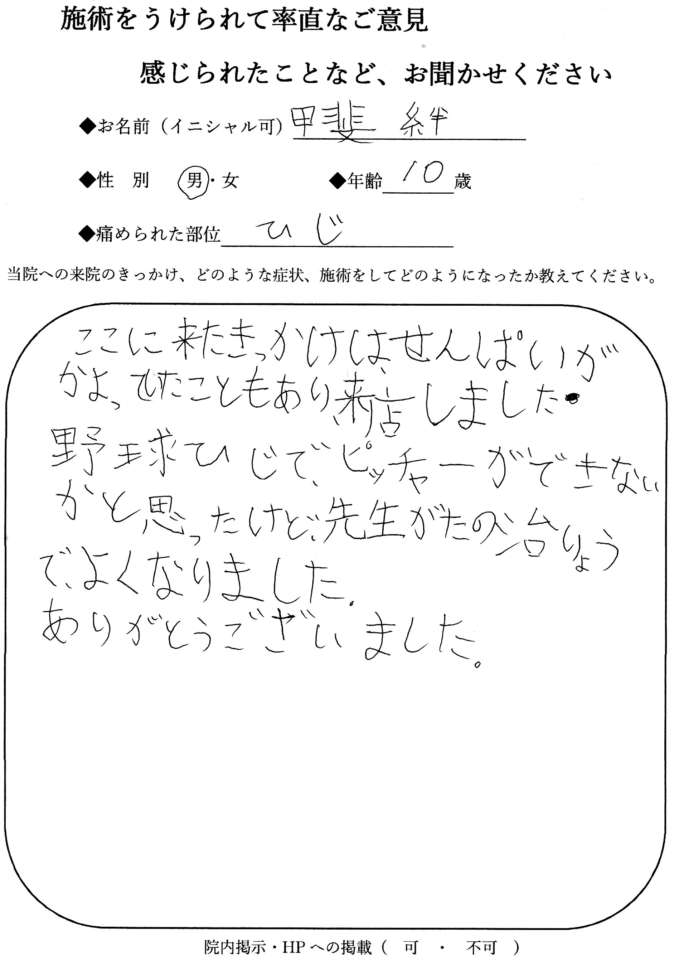 施術をうけられて率直なご意見
感じられたことなど、お聞かせください
◆お名前（イニシャル可） 甲斐 絆
◆性 別 男・女 ◆年齢 10 歳
◆痛められた部位 ひじ
当院への来院のきっかけ、どのような症状、施術をしてどのようになったか教えてください。
ここに来たきっかけは、せんぱいが
かよっていたこともあり来店しました。
野球ひじで、ピッチャーができない
かと思ったけど、先生がたの治りょう
で、よくなりました。
ありがとうございました。
院内掲示・HPへの掲載（ 可 ・ 不可 ）